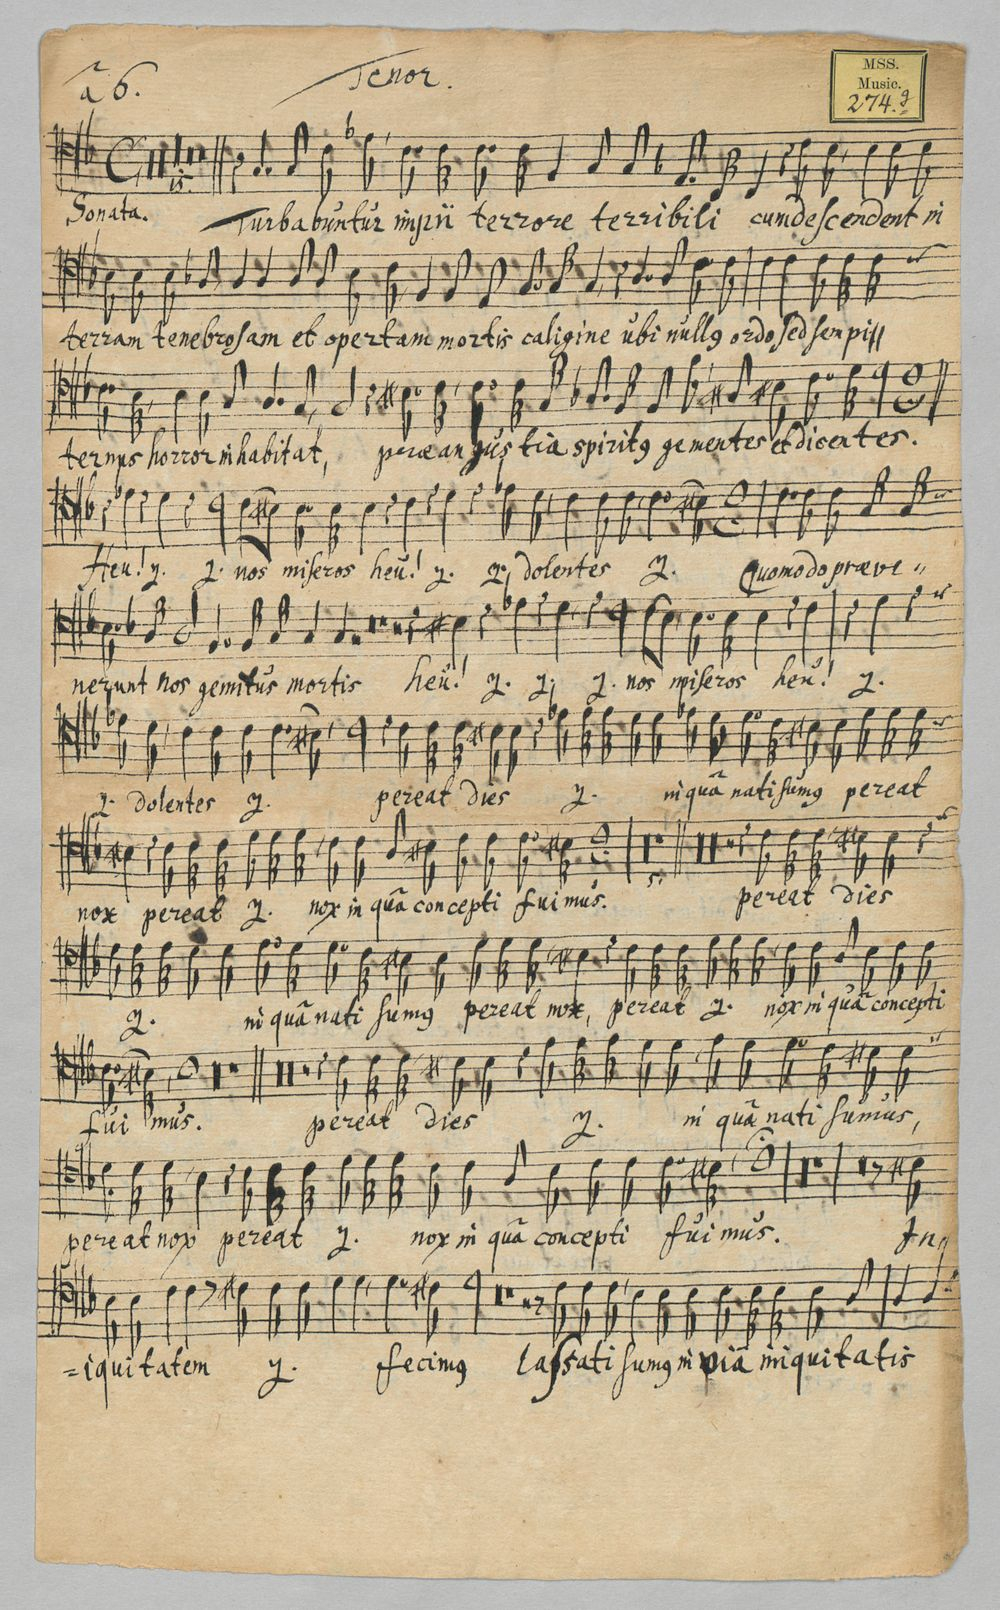 ã 6.
Tenor.
MSS.
Music.
274.g
15.
Sonata. Turbabuntur impii terrore terribili cum descendent in
terram tenebrosam et opertam mortis caligine ubi nullꝰ ordo sed sempi//
ternus horror inhabitat, præ angustia spiritꝰ gementes et dicentes.
Heu! y. y. nos miseros heu! y. y. dolentes y. Quomodo præve=
nerunt nos gemitus mortis heu! y. y. y. nos miseros heu! y.
y. dolentes y. pereat dies y. in quã nati sumꝰ pereat
5.
nox pereat y. nox in quã concepti fuimus. pereat dies
y. in quã nati sumꝰ pereat nox, pereat y. nox in quã concepti
fuimus. pereat dies y. in quã nati sumus,
pereat nox pereat y. nox in quã concepti fuimus. In,,
=iquitatem y. fecimꝰ lassati sumꝰ in viã iniquitatis